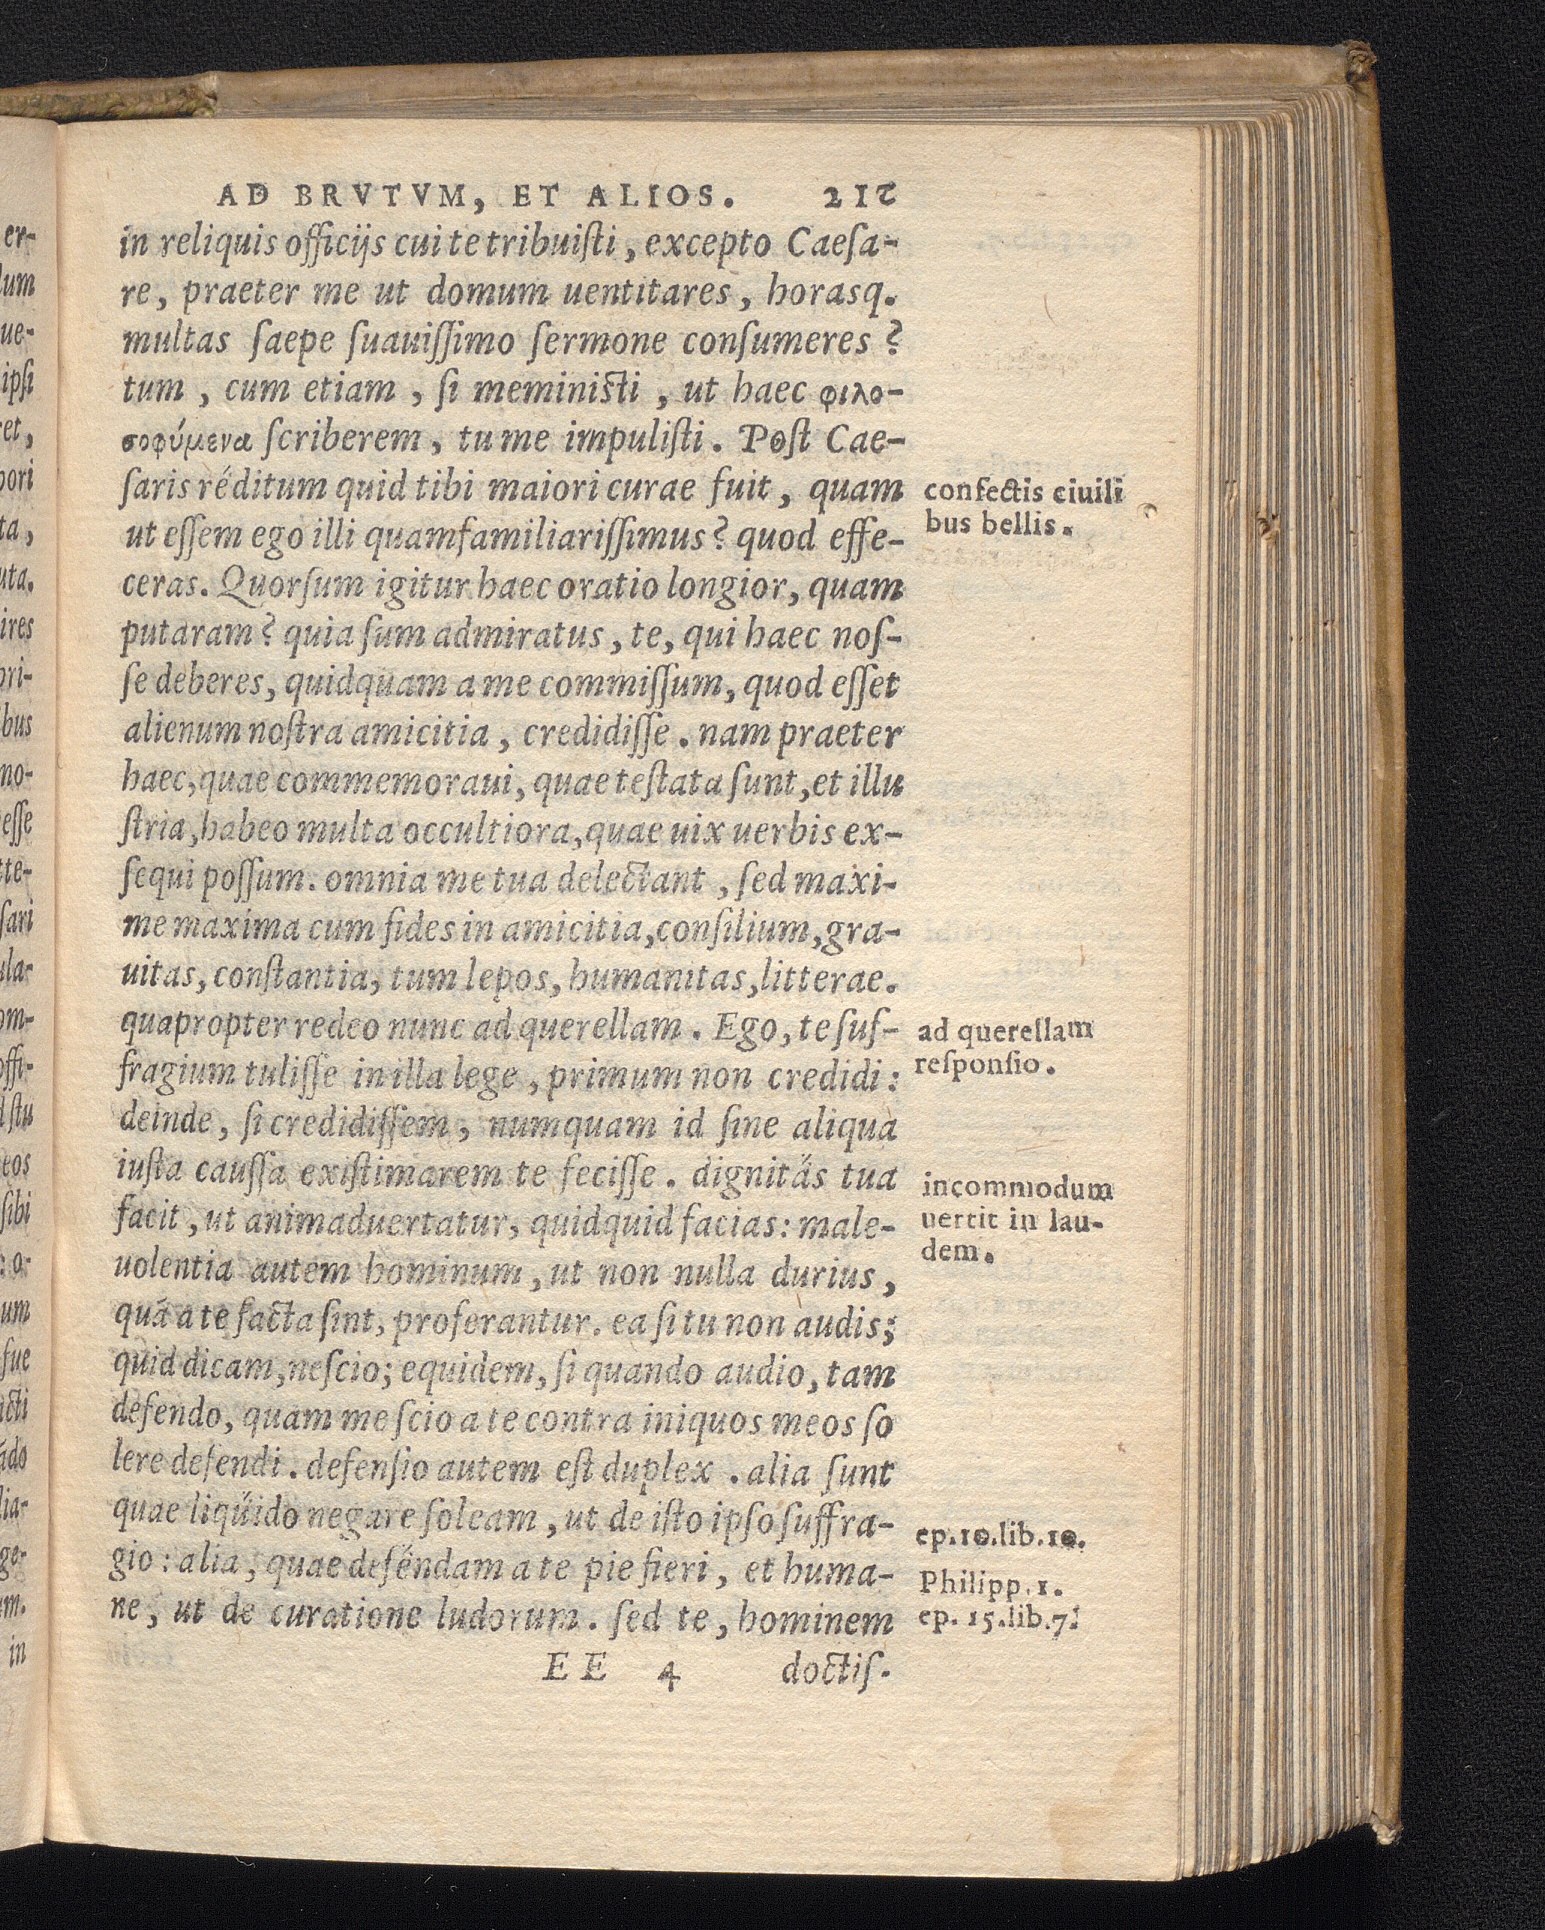 AD BRVTVM, ET ALIOS. 212
in reliquis officijs cui te tribuiſti, excepto Caeſa-
re, praeter me ut domum uentitares, horasq.
multas ſaepe ſuauiſſimo ſermone conſumeres?
tum, cum etiam, ſi meminiſti, ut haec φιλο-
σοφύμενα ſcriberem, tu me impuliſti. Poſt Cae-
ſaris réditum quid tibi maiori curae fuit, quam
ut eſſem ego illi quamfamiliariſſimus? quod effe-
ceras. Quorſum igitur haec oratio longior, quam
putaram? quia ſum admiratus, te, qui haec noſ-
ſe deberes, quidquam a me commiſſum, quod eſſet
alienum noſtra amicitia, credidiſſe. nam praeter
haec, quae commemoraui, quae teſtata ſunt, et illu
ſtria, habeo multa occultiora, quae uix uerbis ex-
ſequi poſſum. omnia me tua delectant, ſed maxi-
me maxima cum fides in amicitia, conſilium, gra-
uitas, conſtantia, tum lepos, humanitas, litterae.
quapropter redeo nunc ad querellam. Ego, te ſuf-
fragium tuliſſe in illa lege, primum non credidi:
deinde, ſi credidiſſem, numquam id ſine aliqua
iuſta cauſſa exiſtimarem te feciſſe. dignitás tua
facit, ut animaduertatur, quidquid facias: male-
uolentia autem hominum, ut non nulla durius,
quā a te facta ſint, proferantur. ea ſi tu non audis;
quid dicam, neſcio; equidem, ſi quando audio, tam
defendo, quam me ſcio a te contra iniquos meos ſo
lere defendi. defenſio autem eſt duplex. alia ſunt
quae liquido negare ſoleam, ut de iſto ipſo ſuffra-
gio: alia, quae deféndam a te pie fieri, et huma-
ne, ut de curatione ludorum. ſed te, hominem
EE 4 doctiſ.
confectis ciuili
bus bellis.
ad querellam
reſponſio.
incommodum
uertit in lau-
dem.
ep.10.lib.10.
Philipp.1.
ep. 15.lib.7.
er-
lum
ue-
ipſi
ret,
pori
ta,
uta.
ires
pri-
bus
mo-
eſſe
tte-
ſari
ula-
om-
offi-
dſtu
eos
ſibi
: o-
um
ſue
icti
ādo
lia-
ge-
um.
in